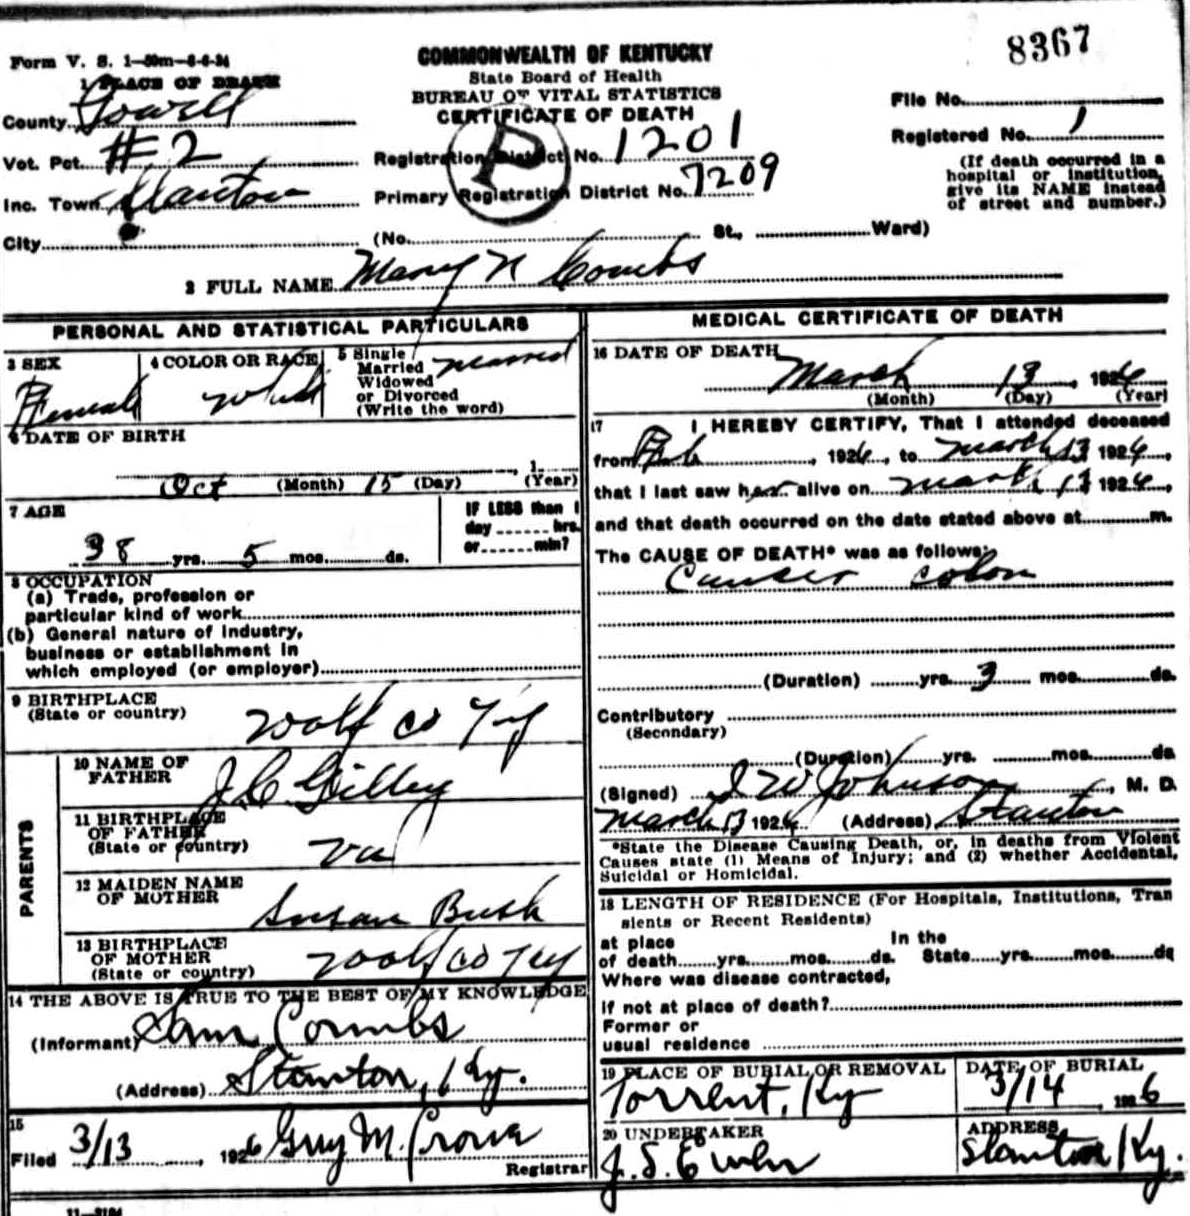 8367
Form V. S. 1-50m-6-6-24
COMMONWEALTH OF KENTUCKY
State Board of Health
BUREAU OF VITAL STATISTICS
CERTIFICATE OF DEATH
1 PLACE OF DEATH
County Powell
Vot. Pct. #2
Inc. Town Stanton
City
(No. St., Ward)
P
Registration District No. 1201
Primary Registration District No. 7209
File No.
Registered No. 1
(If death occurred in a
hospital or institution,
give its NAME instead
of street and number.)
2 FULL NAME Mary N Combs
PERSONAL AND STATISTICAL PARTICULARS
3 SEX
Female
4 COLOR OR RACE
White
5 Single
Married
Widowed
or Divorced
(Write the word)
married
6 DATE OF BIRTH
, 1
Oct (Month) 15 (Day) (Year)
7 AGE
38 yrs. 5 mos. ds.
IF LESS than 1
day hrs.
or min?
8 OCCUPATION
(a) Trade, profession or
particular kind of work
(b) General nature of industry,
business or establishment in
which employed (or employer)
9 BIRTHPLACE
(State or country)
Wolf co Ky
PARENTS
10 NAME OF
FATHER
J. C. Gilley
11 BIRTHPLACE
OF FATHER
(State or country)
Va
12 MAIDEN NAME
OF MOTHER
Susan Bush
13 BIRTHPLACE
OF MOTHER
(State or country)
Wolf co Ky
14 THE ABOVE IS TRUE TO THE BEST OF MY KNOWLEDGE
(Informant) Sam Combs
(Address) Stanton, Ky.
15
Filed 3/13, 1926 Guy M.
Registrar
11-3184
MEDICAL CERTIFICATE OF DEATH
16 DATE OF DEATH
March 13, 1926
(Month) (Day) (Year)
17 I HEREBY CERTIFY, That I attended deceased
from Feb, 1926, to March 13 1926,
that I last saw her alive on March 13 1926,
and that death occurred on the date stated above at m.
The CAUSE OF DEATH* was as follows:
Canser colon
(Duration) yrs. 3 mos. ds.
Contributory
(Secondary)
(Duration) yrs. mos. ds
(Signed) I W Johnson, M. D.
March 13 1926 (Address) Stanton
*State the Disease Causing Death, or, in deaths from Violent
Causes state (1) Means of Injury; and (2) whether Accidental,
Suicidal or Homicidal.
18 LENGTH OF RESIDENCE (For Hospitals, Institutions, Tran
sients or Recent Residents)
at place In the
of death yrs. mos. ds. State yrs. mos. ds
Where was disease contracted,
if not at place of death?
Former or
usual residence
19 PLACE OF BURIAL OR REMOVAL
Torrent, Ky
DATE OF BURIAL
3/14, 1926
20 UNDERTAKER
J. S. Ewen
ADDRESS
Stanton Ky.